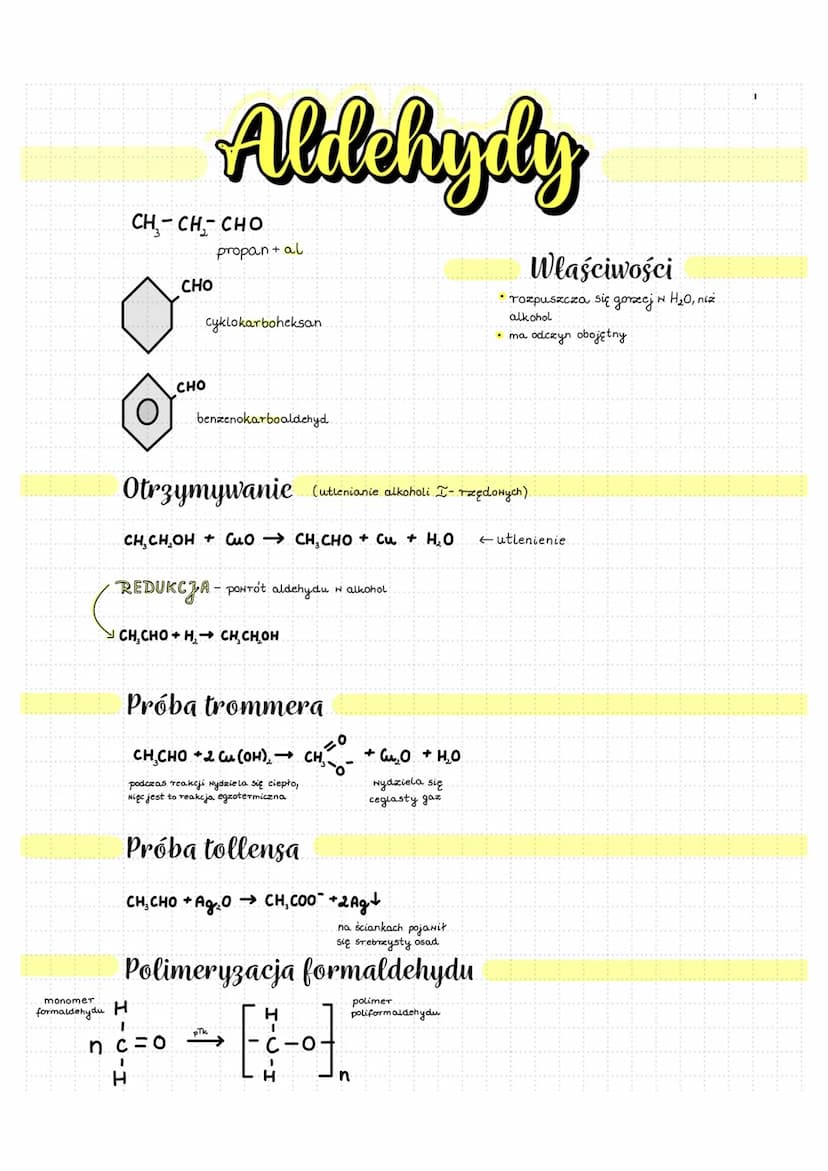 Aldehydy
CH₃-CH₂-CHO
propan + al
CHO
cyklokarboheksan
CHO
benzenokarboaldehyd
Właściwości
• rozpuszcza się gorzej w H₂O, niż
alkohol
• ma odczyn obojętny
Otrzymywanie (utlenianie alkoholi I-rzędowych)
CH₃CH₂OH + CuO → CH₃CHO + Cu + H₂O ← utlenienie
REDUKCJA - powrót aldehydu w alkohol
CH₃CHO + H₂ → CH₃CH₂OH
Próba trommera
CH₃CHO + 2 Cu(OH)₂ → CH₃ O O⁻ + Cu₂O + H₂O
podczas reakcji wydziela się ciepło,
więc jest to reakcja egzotermiczna
wydziela się
ceglasty gaz
Próba tollensa
CH₃CHO + Ag₂O → CH₃COO⁻ + 2Ag↓
na ściankach pojawił
się srebrzysty osad
Polimeryzacja formaldehydu
monomer
formaldehydu
H
n C=O
H
pTk
→
H
[-C-O-]n
H
polimer
poliformaldehydu